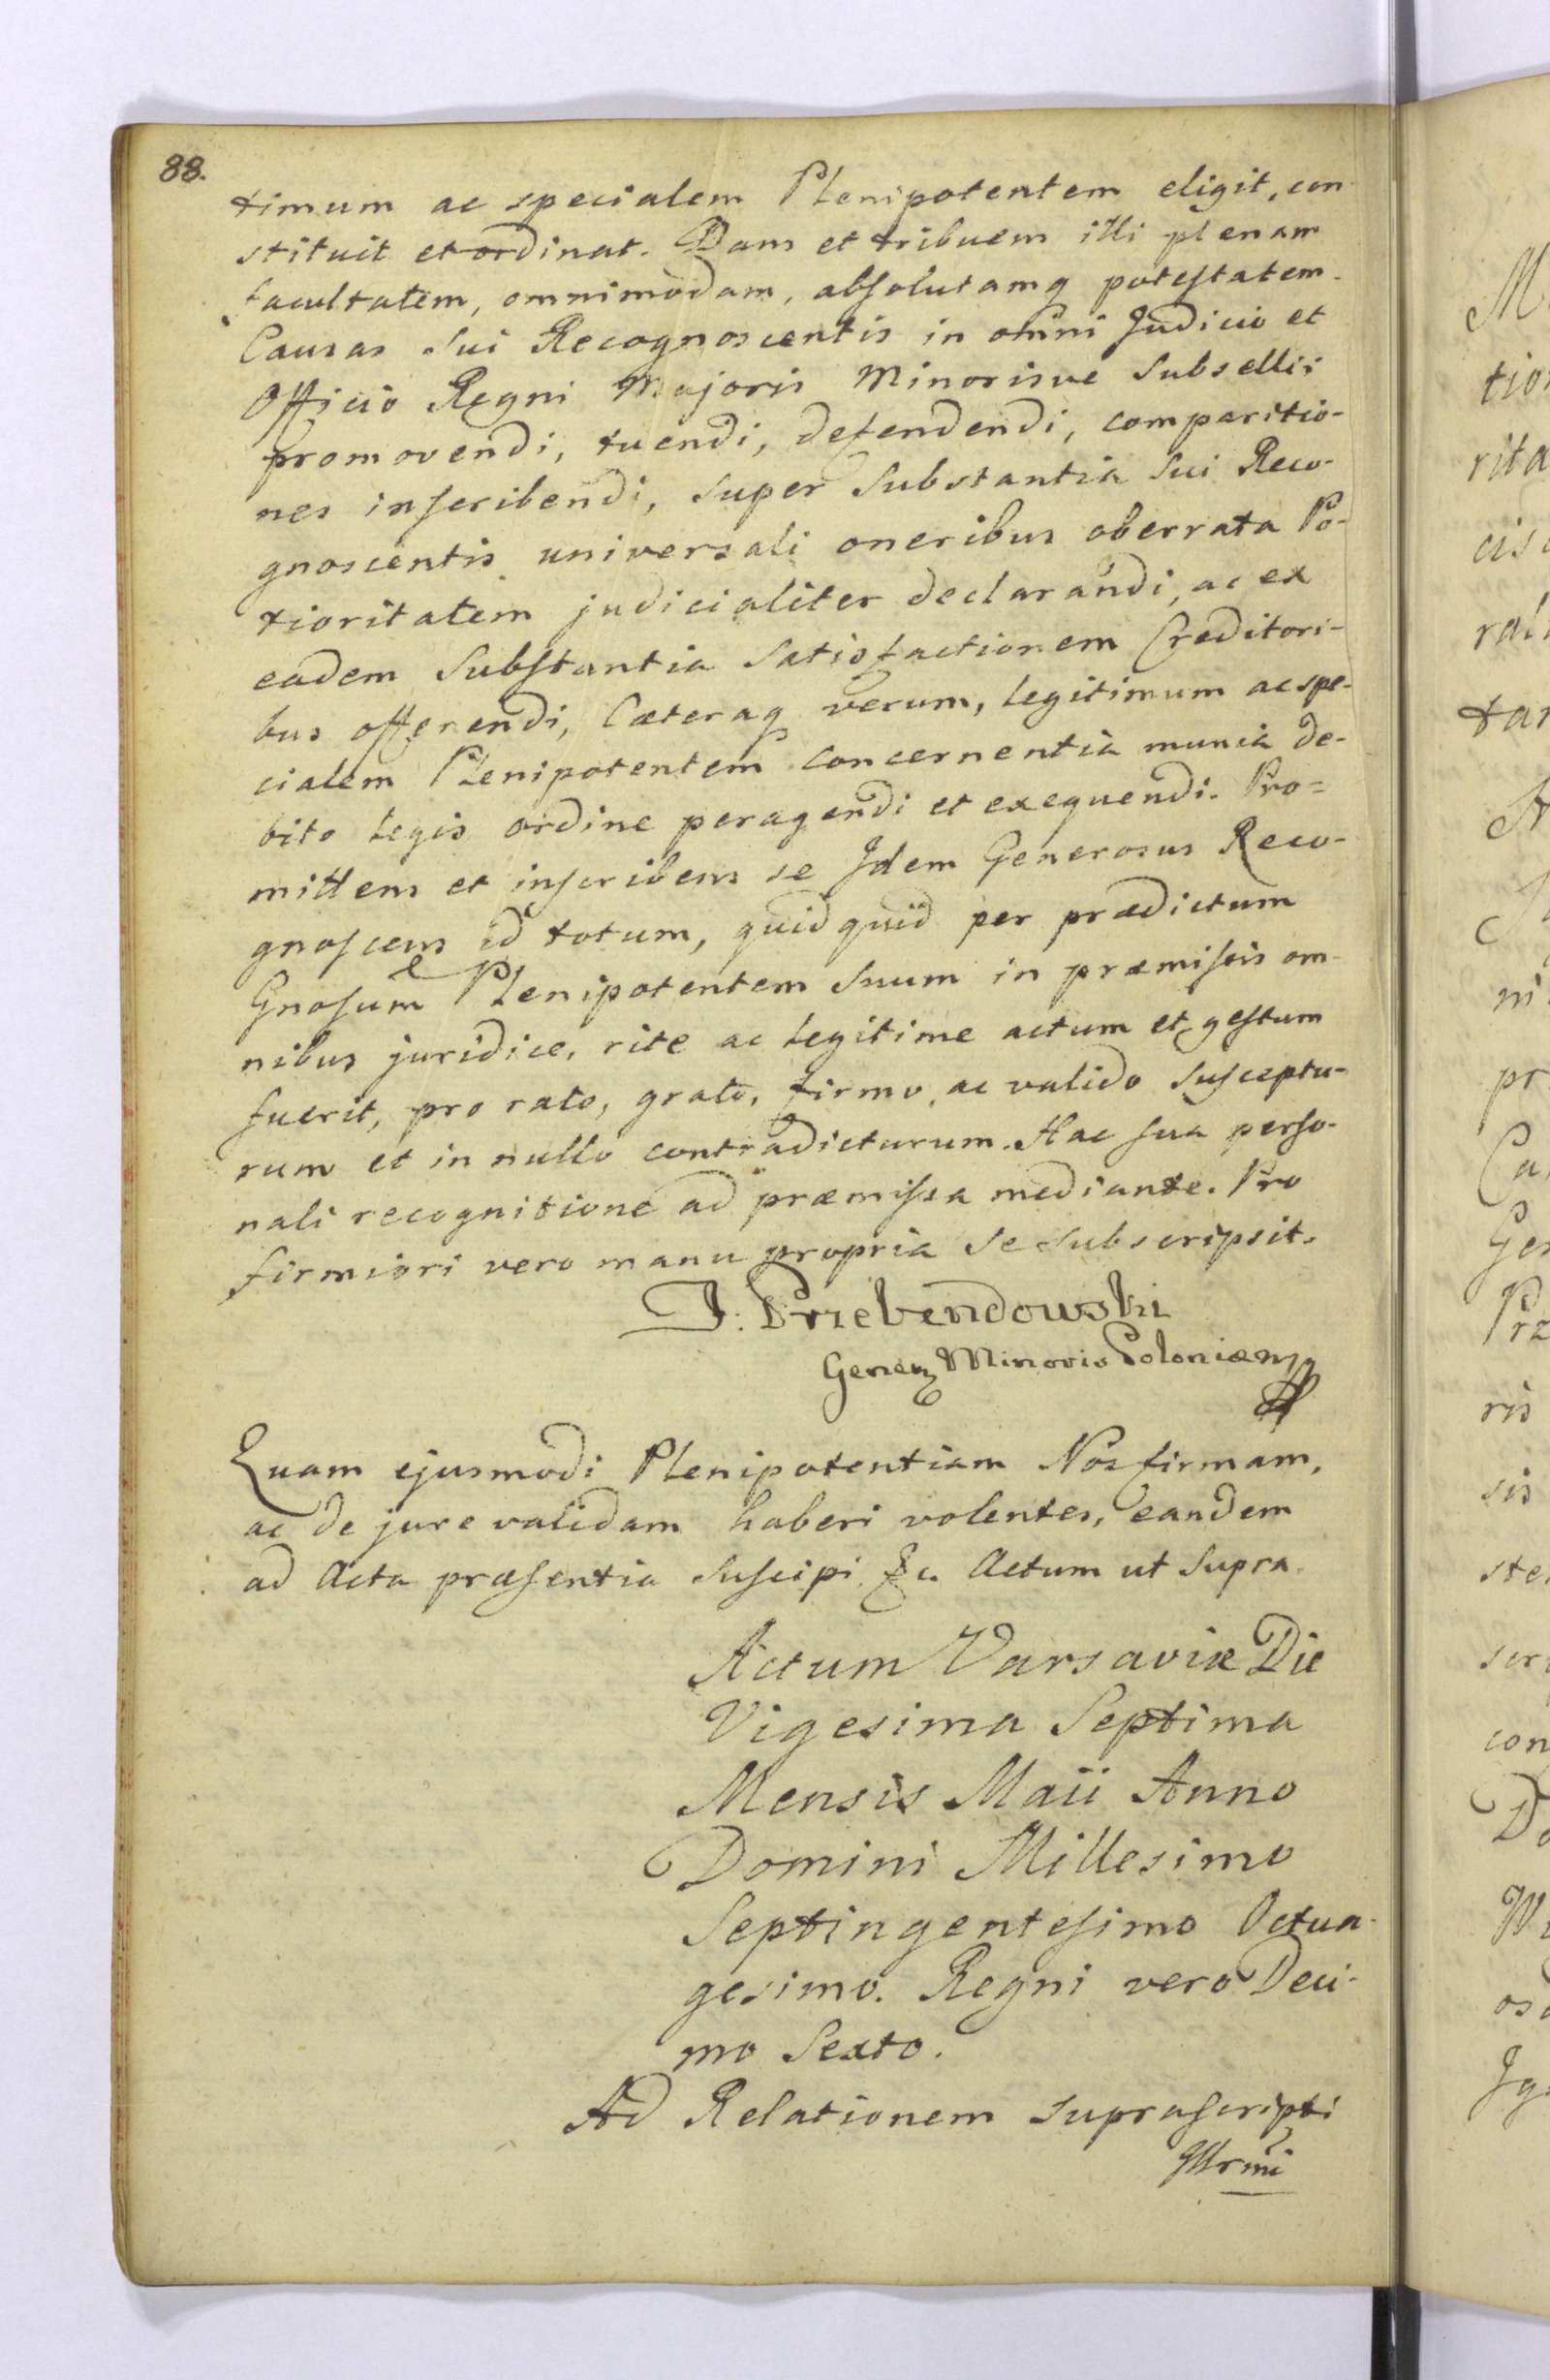 88.
timum ac specialem Plenipotentem eligit, con-
stituit et ordinat. Dans et tribuens illi plenam
facultatem, omnimodam, absolutamq potestatem
Causas Sui Recognoscentis in omni Judicio et
Officio Regni Majoris Minorisve Subsellii
promovendi, tuendi, defendendi, comparitio-
nes inscribendi, Super Substantia Sui Reco-
gnoscentis universali oneribus oberrata Po-
tioritatem judicialiter declarandi, ac ex
eadem Substantia Satisfactionem Creditori-
bus offerendi, Cæteraq verum, legitimum ac spe-
cialem Plenipotentem concernentia munia de-
bito legis ordine peragendi et exequendi. Pro=
mittens et inscribens se Idem Generosus Reco-
gnoscens id totum, quidquid per prædictum
Gnosum Plenipotentem Suum in præmissis om-
nibus juridice, rite ac legitime actum et gestum
fuerit, pro rato, grato, firmo, ac valido Susceptu-
rum et in nullo contradicturum. Hac sua perso-
nali recognitione ad præmissa mediante. Pro
firmiori vero manu propria Se Subscripsit.
J. Przebendowski
Minoris Poloniæ mp
Quam ejusmodi Plenipotentiam Nos firmam,
ac de jure validam haberi volentes, eandem
ad Acta præsentia Suscipi &c. Actum ut Supra.
Actum Varsaviæ Die
Vigesima Septima
Mensis Maii Anno
Domini Millesimo
Septingentesimo Octua-
gesimo. Regni vero Deci-
mo Sexto.
Ad Relationem Suprascripti